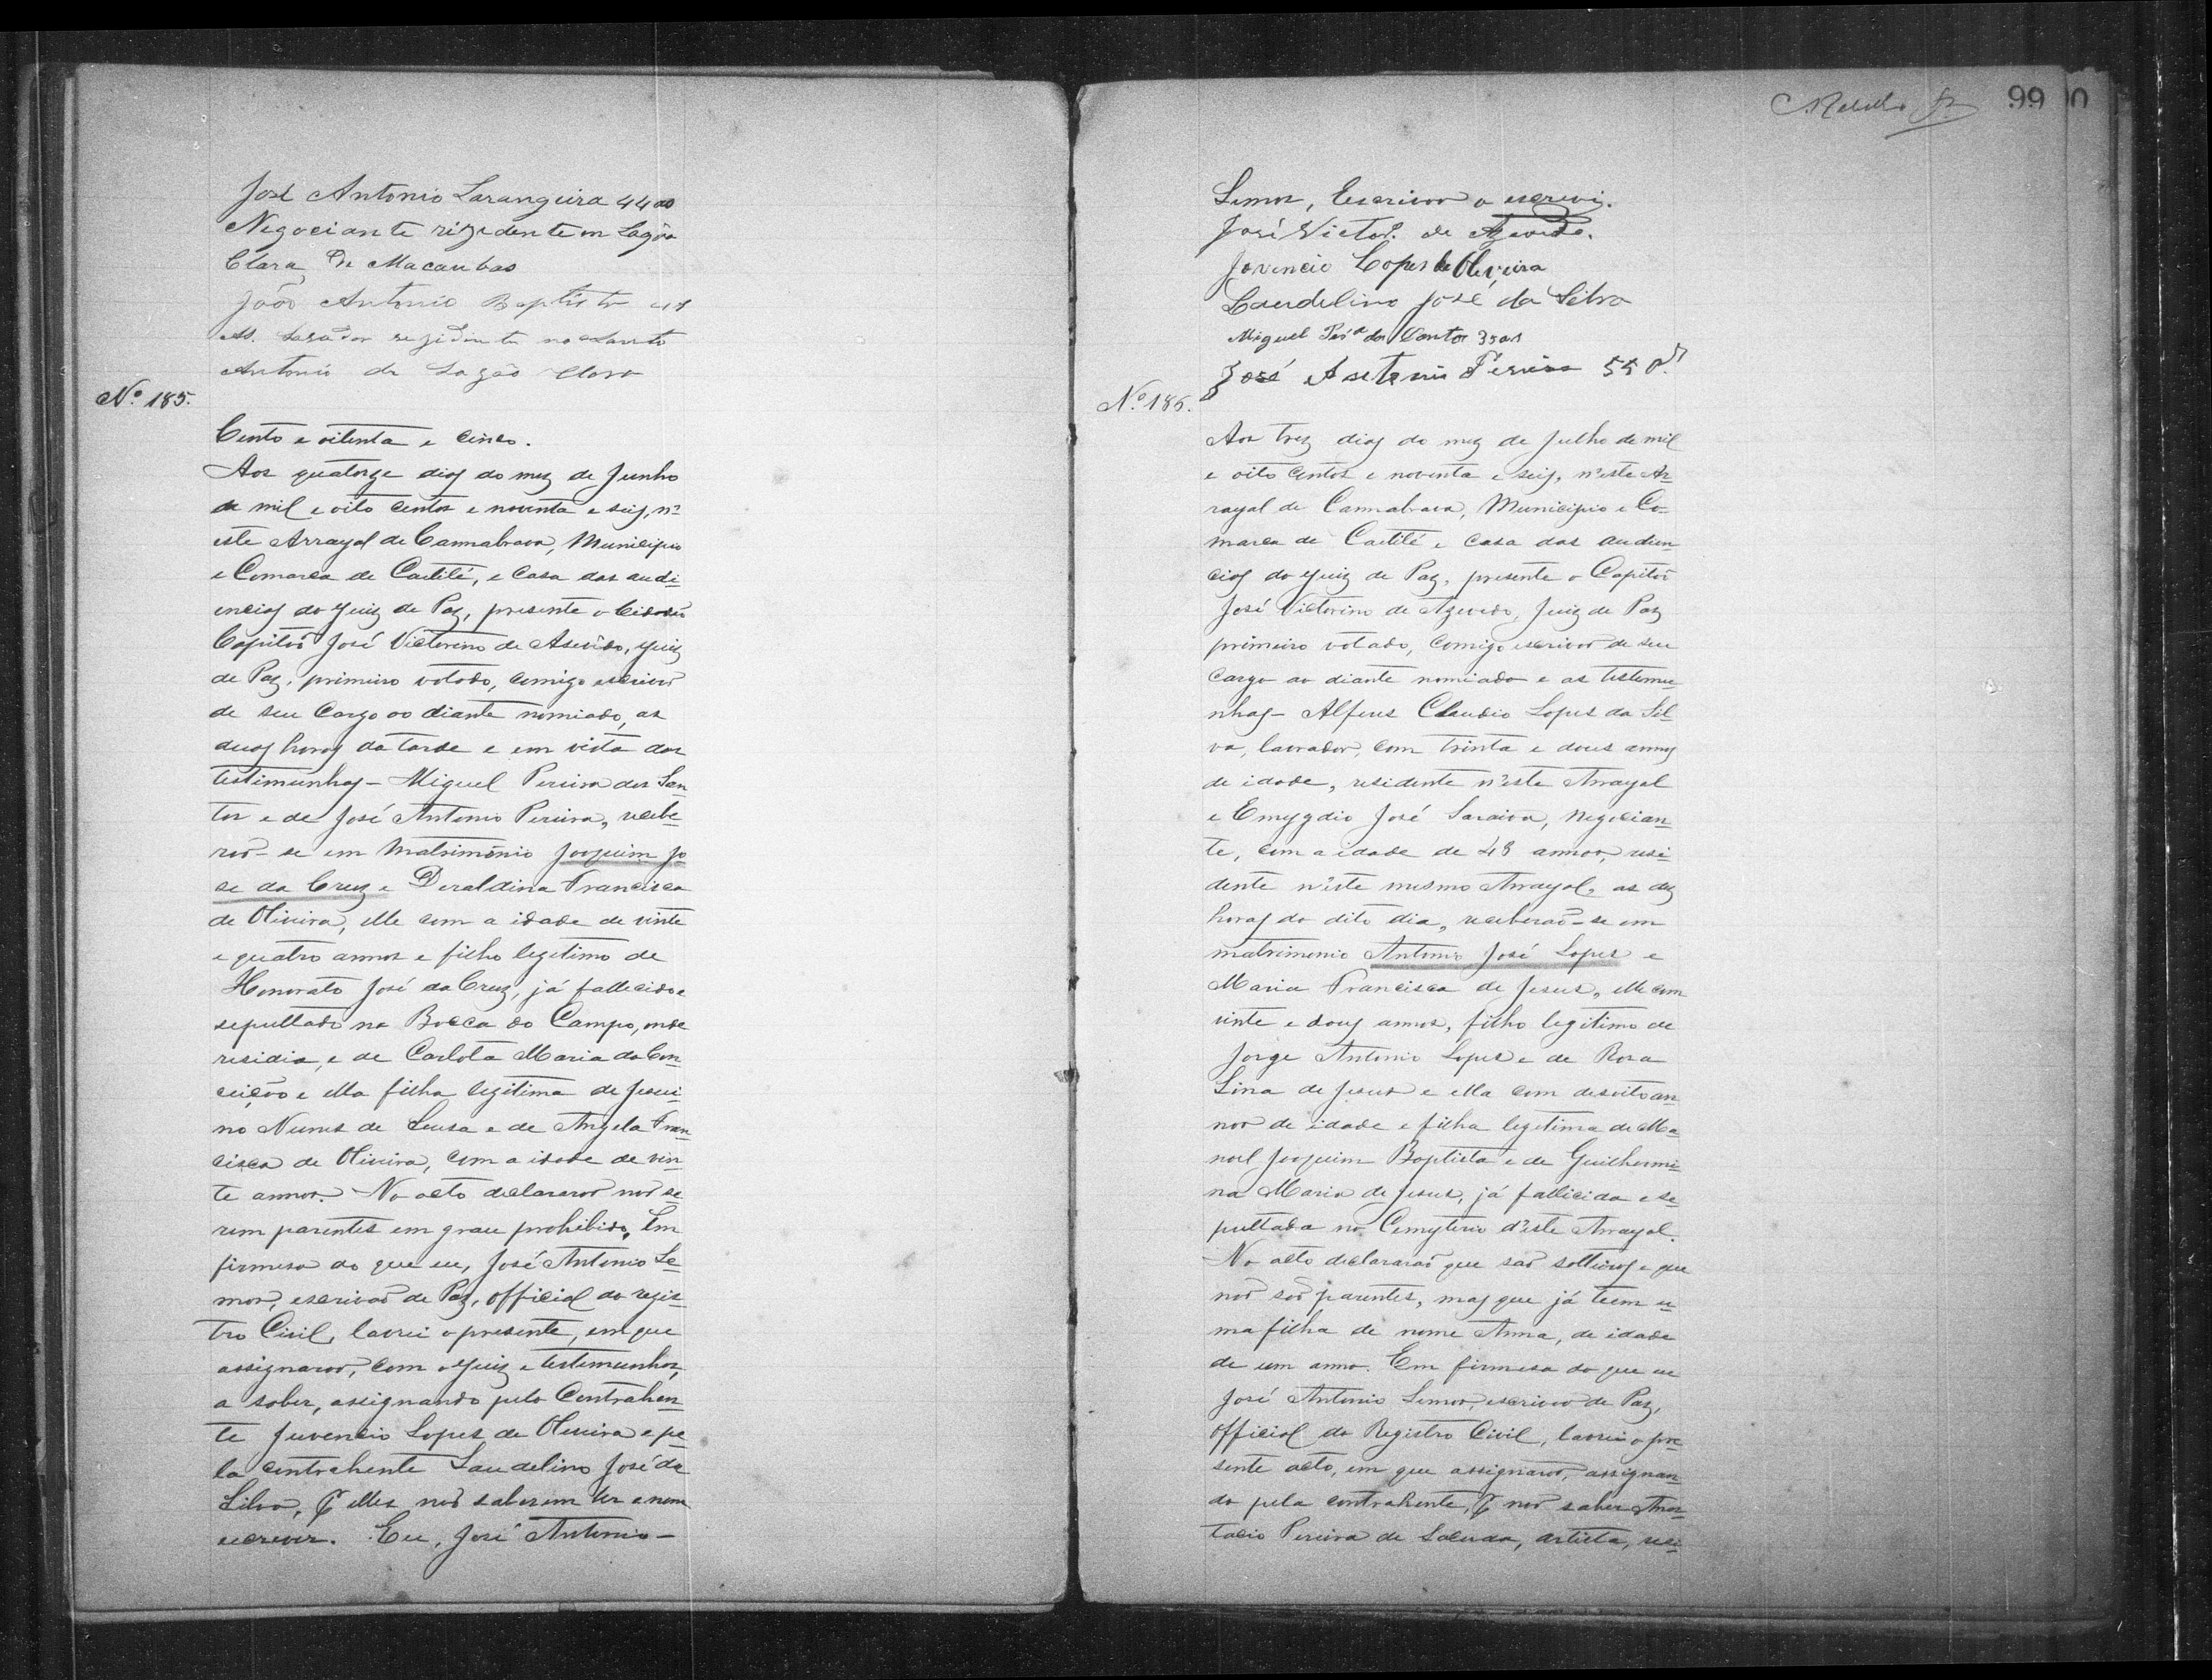 José Antonio Larangeira 44 as
Negociante rizidente em Lagôa
Clara de Macaubas
João Antonio Baptista
As. Lavador rezidente no Santo
Antonio da Lagôa Clara
Nº 185.
Cento e oitenta e cinco.
Aos quatorze dias do mez de Junho
de mil e oito centos e noventa e seis, n'
este Arrayal de Cannabrava, Municipio
e Comarca de Caetité, e casa das audi-
encias do Juiz de Paz, presente o Cidadão
Capitão José Victorino de Asevêdo, Juiz
de Paz, primeiro votado, comigo escrivão
de seu Cargo ao diante nomiado, as
duas horas da tarde e em vista das
testimunhas - Miguel Pereira dos San-
tos e de José Antonio Pereira, recebe-
rão-se em Matrimônio Joaquim Jo-
se da Cruz e Deraldina Francisca
de Oliveira, elle com a idade de vinte
e quatro annos e filho legitimo de
Honorato José da Cruz, já fallecido e
sepultado na Bocca do Campo, onde
residia, e de Carlota Maria da Con-
ceição e ella filha legitima de Jesui-
no Nunes de Sousa e de Angela Fran-
cisca de Oliveira, com a idade de vin-
te annos. No acto declararão não se-
rem parentes em grau prohibido. Em
firmesa do que eu, José Antonio Le-
mos, escrivão de Paz, official do regis-
tro Civil, lavrei o presente, em que
assignarão, com o Juiz e testemunhas,
a saber, assignando pelo Contrahen-
te Juvencio Lopes de Oliveira e pe-
la contrahente Laudelino José da
Silva, p elles não saberem ler e nem
escrever. Eu, José Antonio -
99
Lemos, Escrivão o escrevi.
José Victoº. de Azevedo.
Jovencio Lopes de Oliveira
Laudelino José da Silva
Miguel Perª dos Santos 35 as
José Antonio Pereira 55
Nº 186.
Aos trez dias do mez de Julho de mil
e oito centos e noventa e seis, n'este Ar-
rayal de Cannabrava, Municipio e Co-
marca de Caetité, e casa das audien-
cias do Juiz de Paz, presente o Capitão
José Victorino de Azevedo, Juiz de Paz
primeiro votado, comigo escrivão de seu
Cargo ao diante nomiado e as testemu-
nhas - Alfeus Claudio Lopes da Sil-
va, lavrador, com trinta e dous annos
de idade, residente n'este Arrayal
e Emygdio José Saraiva, negocian-
te, com a idade de 48 annos, resi-
dente n'este mesmo Arrayal, as dez
horas do dito dia, receberão-se em
matrimonio Antonio José Lopes e
Maria Francisca de Jesus, elle com
vinte e dous annos, filho legitimo de
Jorge Antonio Lopes e de Rosa
Lina de Jesus e ella com desoito an-
nos de idade e filha legitima de Ma-
noel Joaquim Baptista e de Guilhermi-
na Maria de Jesus, já fallicida e se-
pultada no Cemyterio d'este Arrayal.
No acto declararão que são solteiros e que
não são parentes, mas que já teem u-
ma filha de nome Anna, de idade
de um anno. Em firmesa do que eu
José Antonio Lemos, escrivão de Paz,
official do Registro Civil, lavrei o pre-
sente acto, em que assignarão, assignan-
do pela contrahente, p não saber Anas-
tacio Pereira de Lacerda, artista, resi-